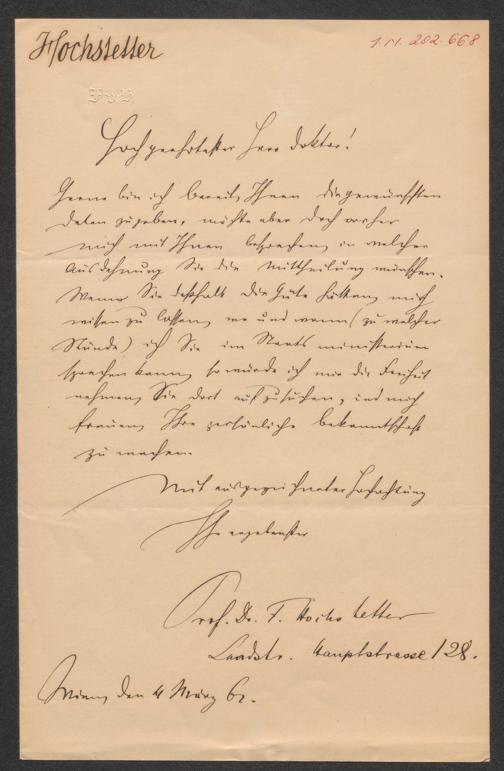 Hochstetter
I.N. 202.668
F v H
Hochgeehrtester Herr Doktor!
Gerne bin ich bereit, Ihnen die gewünschten
Daten zu geben, möchte aber doch vorher
mich mit Ihnen besprechen, in welcher
Ausdehnung Sie die Mittheilung wünschen.
Wenn Sie deßhalb die Güte hätten, mich
wissen zu lassen, wo und wann (zu welcher
Stunde) ich Sie im Staatsministerium
sprechen kann, so würde ich mir die Freiheit
nehmen, Sie dort aufzusuchen, und mich
freuen, Ihre persönliche Bekanntschaft
zu machen.
Mit ausgezeichneter Hochachtung
Ihr ergebenster
Prof. Dr. F. Hochstetter
Landstr. Hauptstrasse 128.
Wien, den 4 März 62.